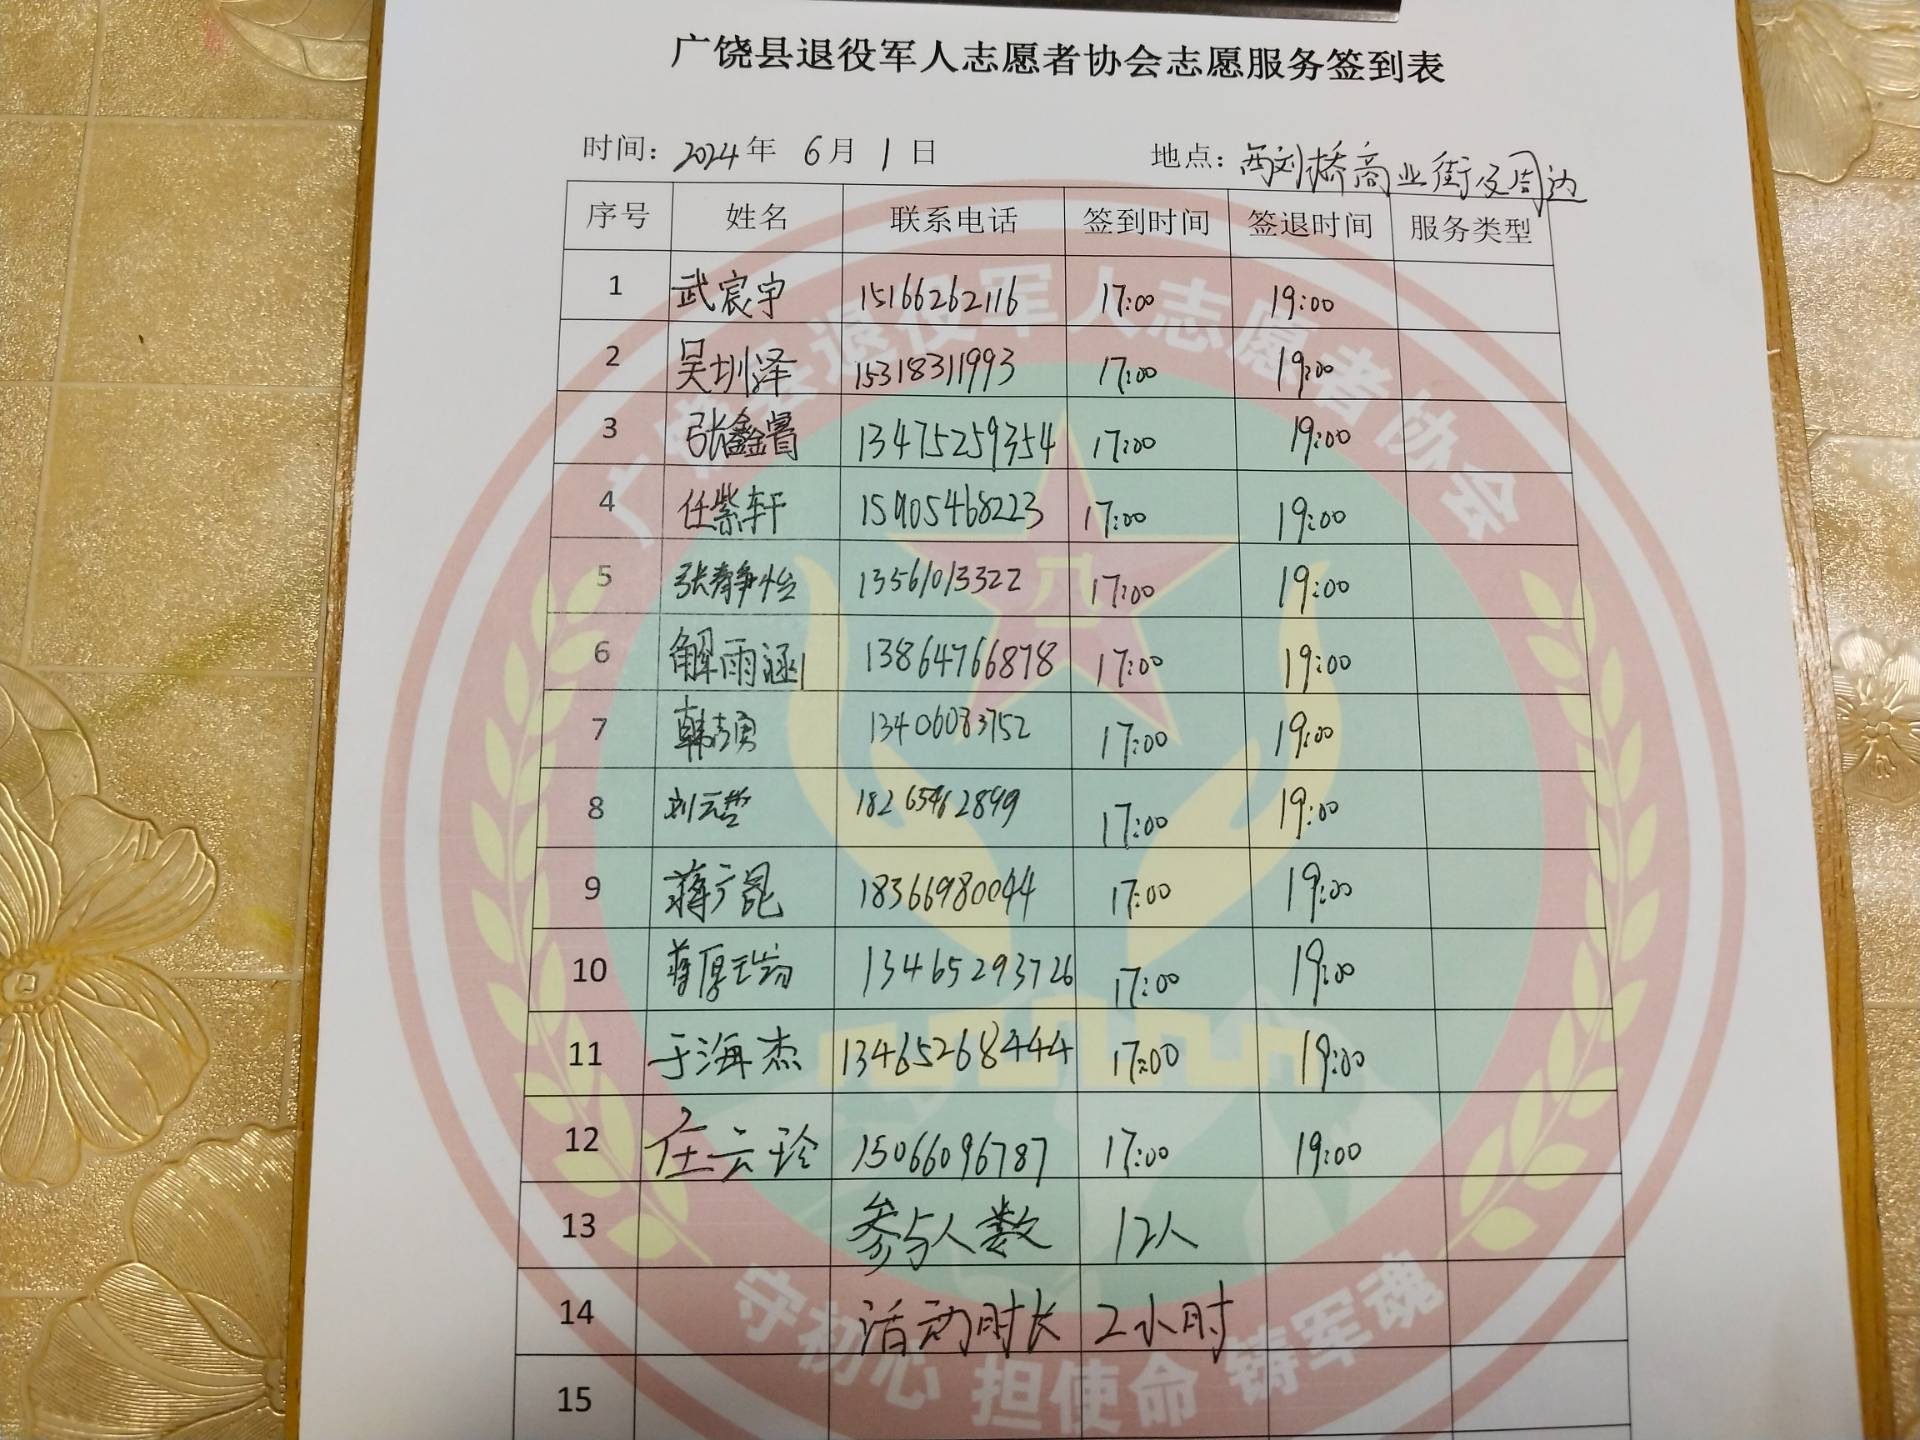 广饶县退役军人志愿者协会志愿服务签到表
时间：2024年 6月 1日 地点：西刘桥商业街及周边
序号 姓名 联系电话 签到时间 签退时间 服务类型
1 武宸宇 15166262116 17:00 19:00
2 吴圳泽 15318311993 17:00 19:00
3 张鑫 13475259354 17:00 19:00
4 任紫轩 15905468223 17:00 19:00
5 张静怡 13561013322 17:00 19:00
6 解雨涵 13864766878 17:00 19:00
7 韩 13406083752 17:00 19:00
8 刘云哲 18265462899 17:00 19:00
9 蒋广昆 18366980044 17:00 19:00
10 蒋厚 13465293726 17:00 19:00
11 于海杰 13465268444 17:00 19:00
12 庄云玲 15066096787 17:00 19:00
13 参与人数 12人
14 活动时长 2小时
15
广饶县退役军人志愿者协会
八一
守初心 担使命 铸军魂